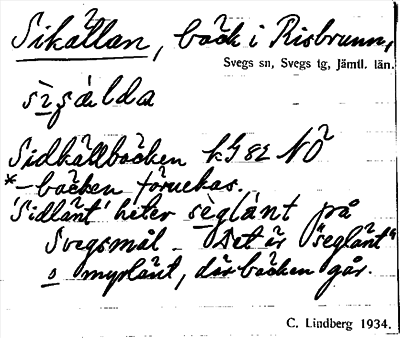 Sikällan, bäck i Risbrunn,
Svegs sn, Svegs tg, Jämtl. län.
Sidkällbäcken kG 82 NÖ
*-bäcken föruekas.
'Sidlänt' heter sèglä́nt på
Svegsmål - Det är "seglänt"
o myrlänt, där bäcken går.
C. Lindberg 1934.